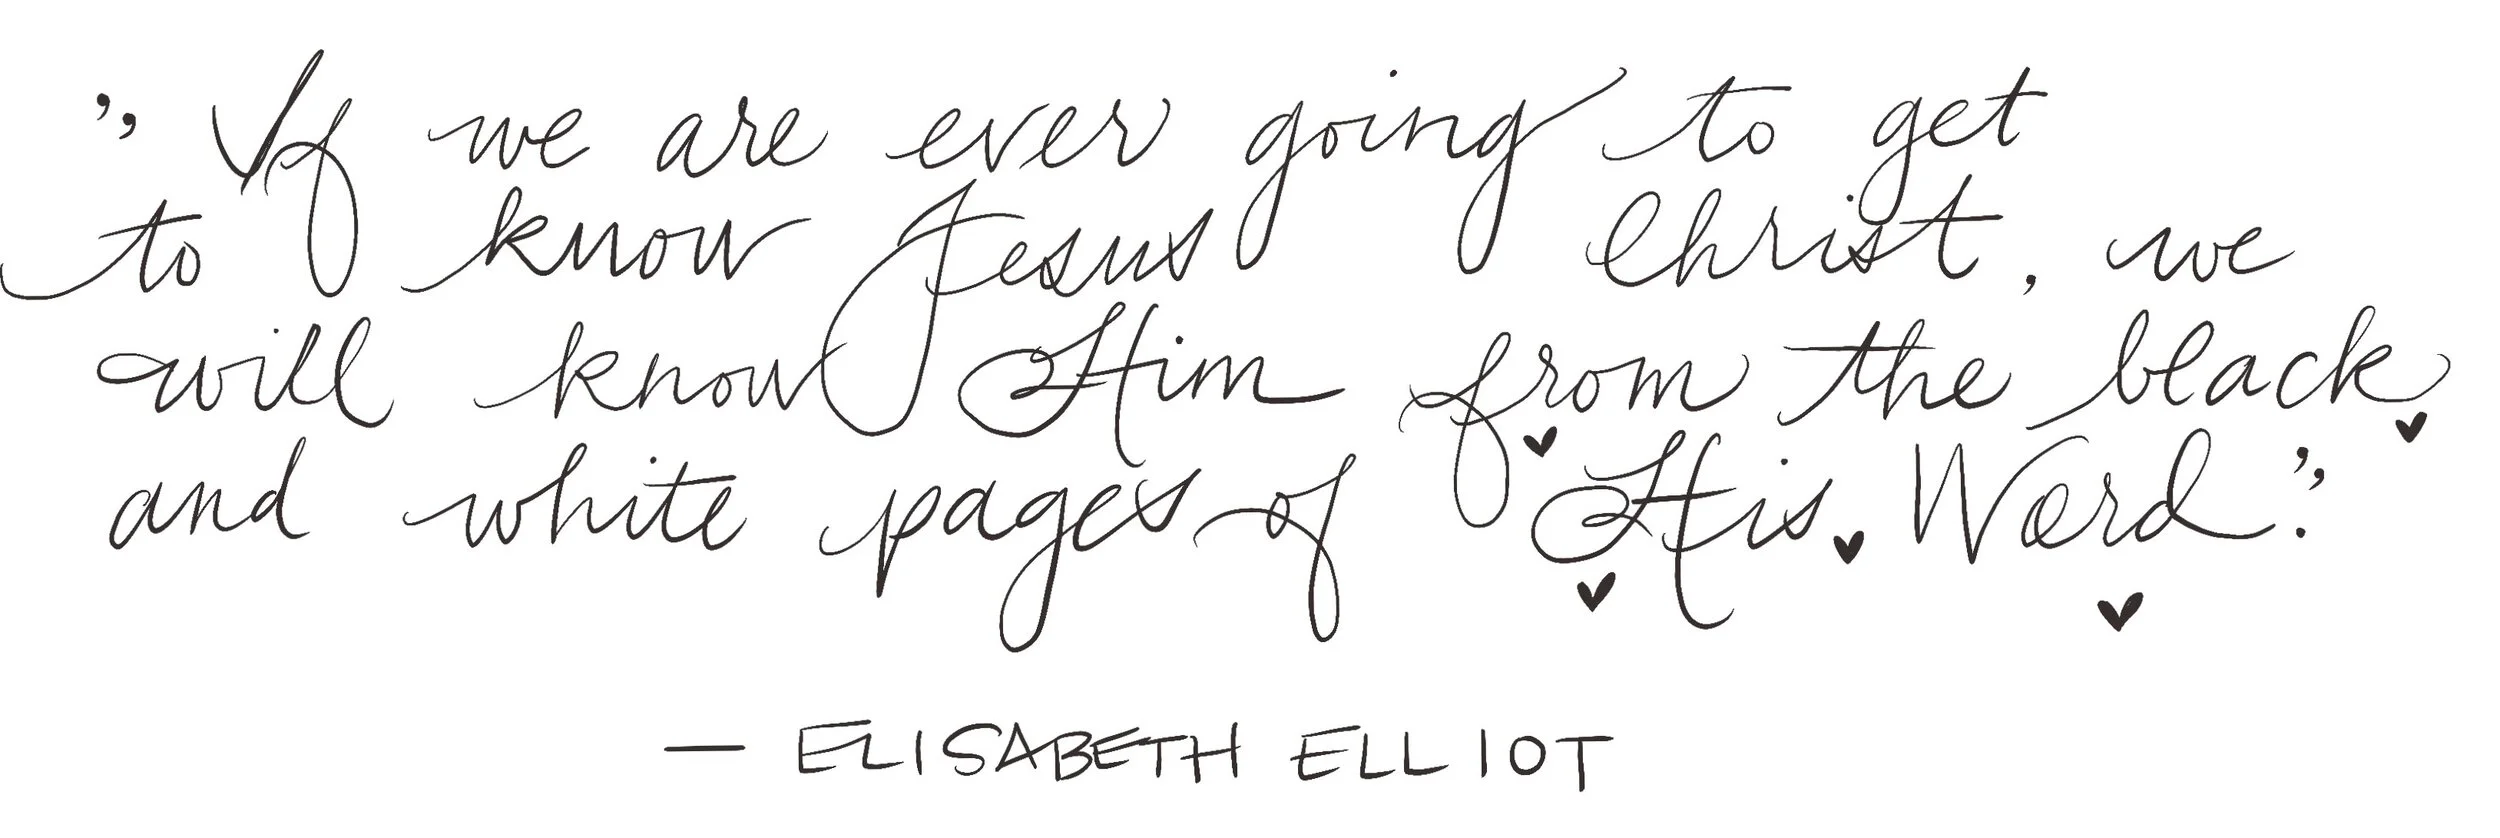 "If we are ever going to get
to know Jesus Christ, we
will know Him from the black
and white pages of His Word."
— ELISABETH ELLIOT